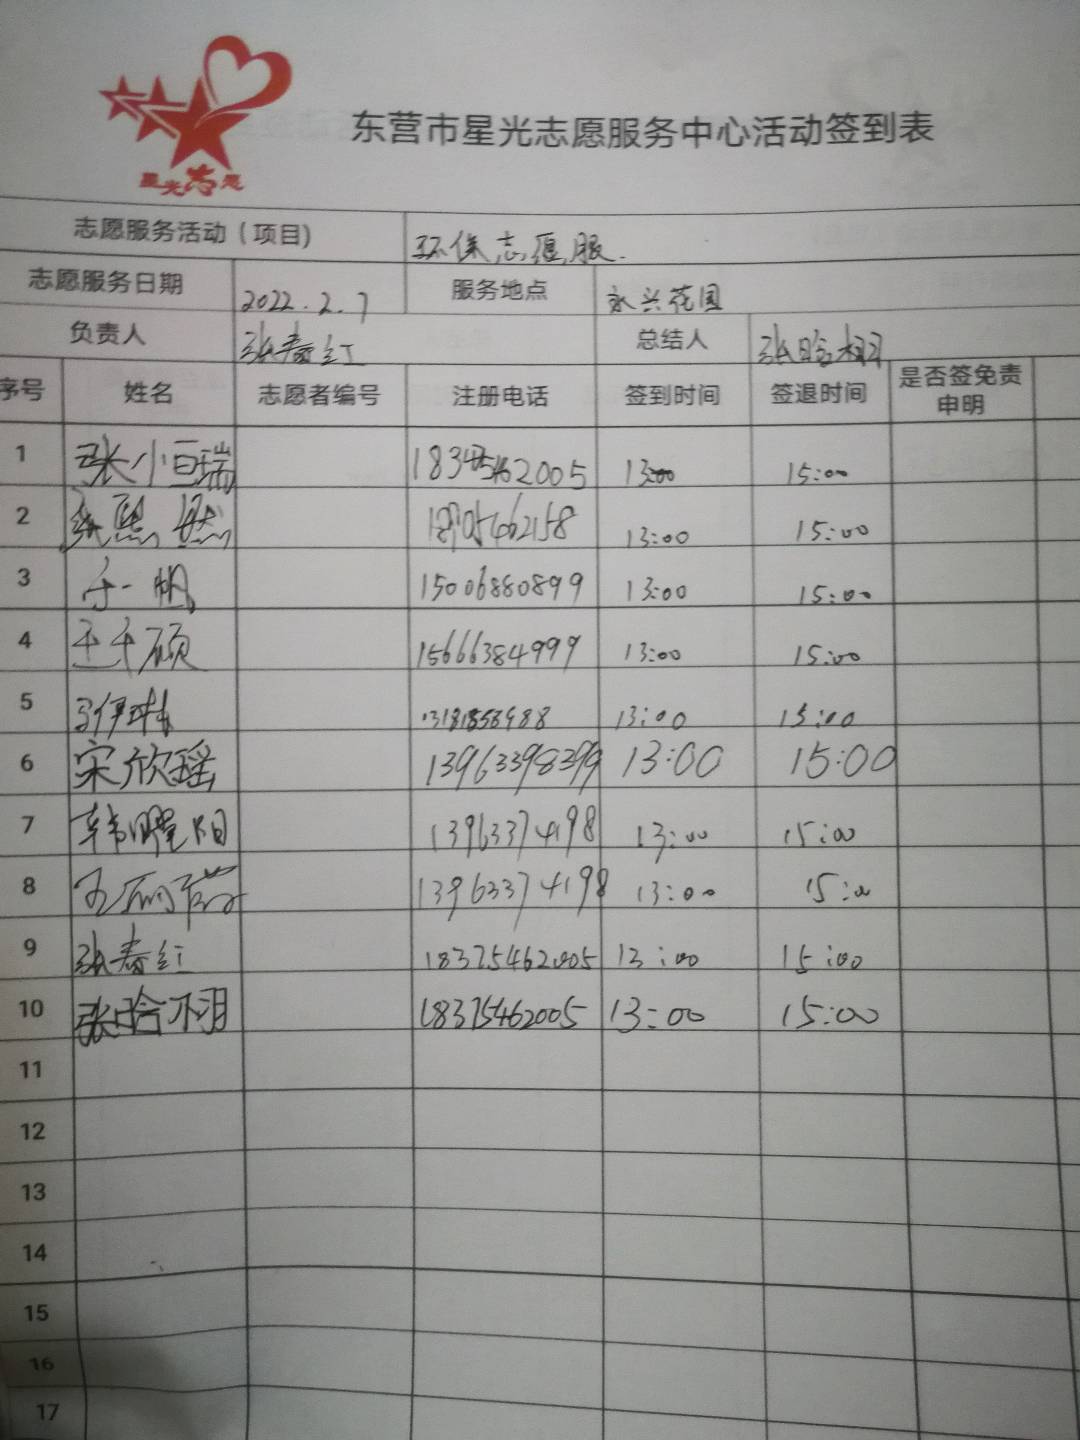 星光志愿
东营市星光志愿服务中心活动签到表
志愿服务活动(项目) 环保志愿服.
志愿服务日期 2022.2.7 服务地点 永兴花园
负责人 张春红 总结人 张晗
序号 姓名 志愿者编号 注册电话 签到时间 签退时间 是否签免责申明
1 张小白瑞 13:00 15:00
2 张熙 13:00 15:00
3 于一帆 15006880899 13:00 15:00
4 王千硕 15666384999 13:00 15:00
5 13:00 15:00
6 宋欣瑶 13963398399 13:00 15:00
7 韩曌阳 13963374198 13:00 15:00
8 王丽 13963374198 13:00 15:00
9 张春红 18375462005 13:00 15:00
10 张晗 18375462005 13:00 15:00
11
12
13
14
15
16
17